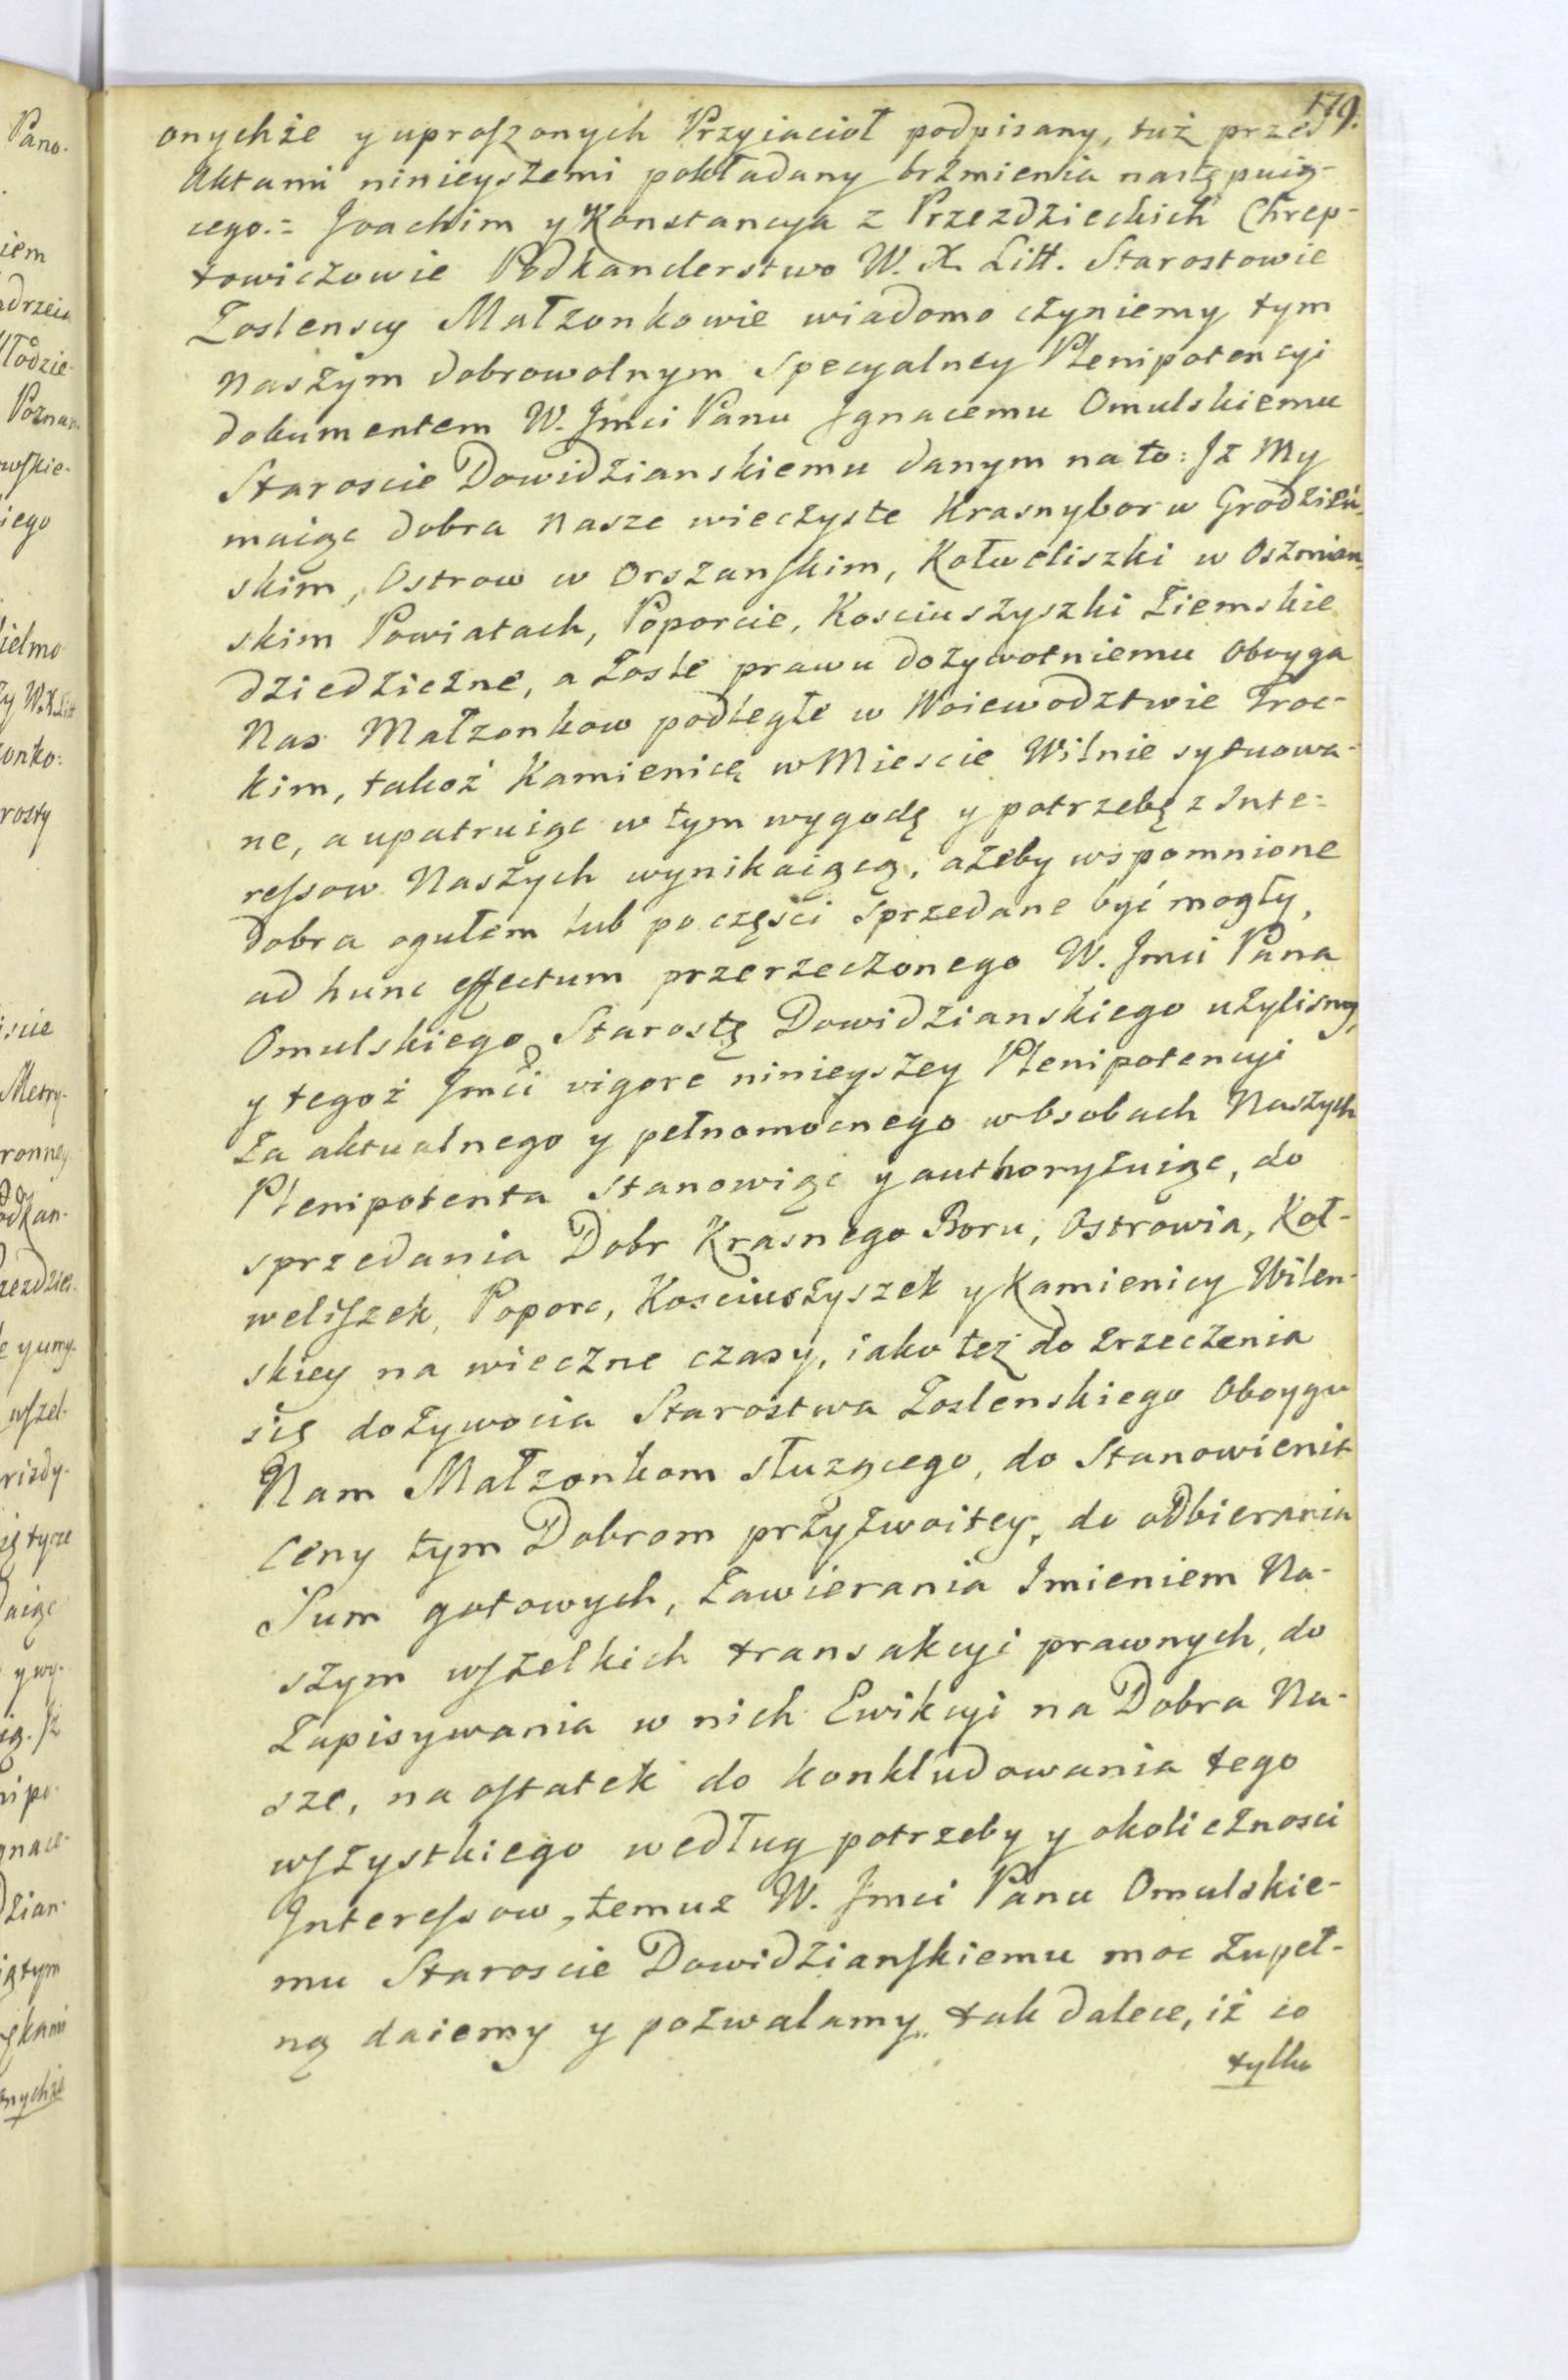 179.
onychże y uproszonych Przyiacioł podpisany, tuż przed
Aktami ninieyszemi pokładany brzmienia następuią-
cego.= Joachim y Konstancya z Przezdzieckich Chrep-
towiczowie Podkanclerstwo W. X. Litt. Starostowie
Zoslenscy Małzonkowie wiadomo czyniemy tym
Naszym dobrowolnym specyalney Plenipotencyi
dokumentem W. Jmci Panu Jgnacemu Omulskiemu
Staroscie Dowidzianskiemu danym na to: Jż My
maiąc dobra Nasze wieczyste Krasnybor w Grodzień-
skim, Ostrow w Orszanskim, Kołweliszki w Oszmian-
skim Powiatach, Poporcie, Kosciuszyszki Ziemskie
dziedziczne, a Zosle prawu dożywotniemu oboyga
Nas Małzonkow podległe w Woiewodztwie Troc-
kim, takoż Kamienicę w Miescie Wilnie sytuowa-
ne, a upatruiąc w tym wygodę y potrzebę z Inte-
ressow Naszych wynikaiącą, ażeby wspomnione
dobra ogułem lub po części sprzedane być mogły,
ad hunc effectum przerzeczonego W. Jmci Pana
Omulskiego Starostę Dowidzianskiego użylismy,
y tegoż Jmci vigore ninieyszey Plenipotencyi
za aktualnego y pełnomocnego w Osobach Naszych
Plenipotenta stanowiąc y authoryzuiąc, do
sprzedania Dobr Krasnego Boru, Ostrowia, Koł-
weliszek, Poporc, Kosciuszyszek y Kamienicy Wilen-
skiey na wieczne czasy, iako też do zrzeczenia
się dożywocia Starostwa Zoslenskiego Oboygu
Nam Małzonkom służącego, do Stanowienia
Ceny tym Dobrom przyzwoitey, do odbierania
Sum gotowych, Zawierania Imieniem Na-
szym wszelkich transakcyi prawnych, do
Zapisywania w nich Ewikcyi na Dobra Na-
sze, na ostatek do konkludowania tego
wszystkiego według potrzeby y okoliczności
Interessow, temuż W. Jmci Panu Omulskie-
mu Staroscie Dowidzianskiemu moc zupeł-
ną daiemy y pozwalamy, tak dalece, iż co
tylko